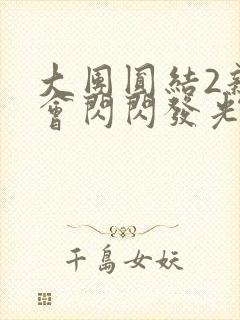 大團圓結2新
會閃閃發光
千島女妖